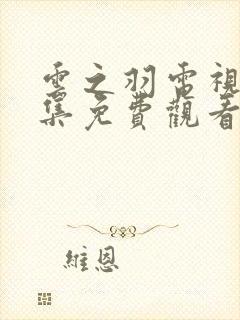 雲之羽電視
集免費觀看
維恩